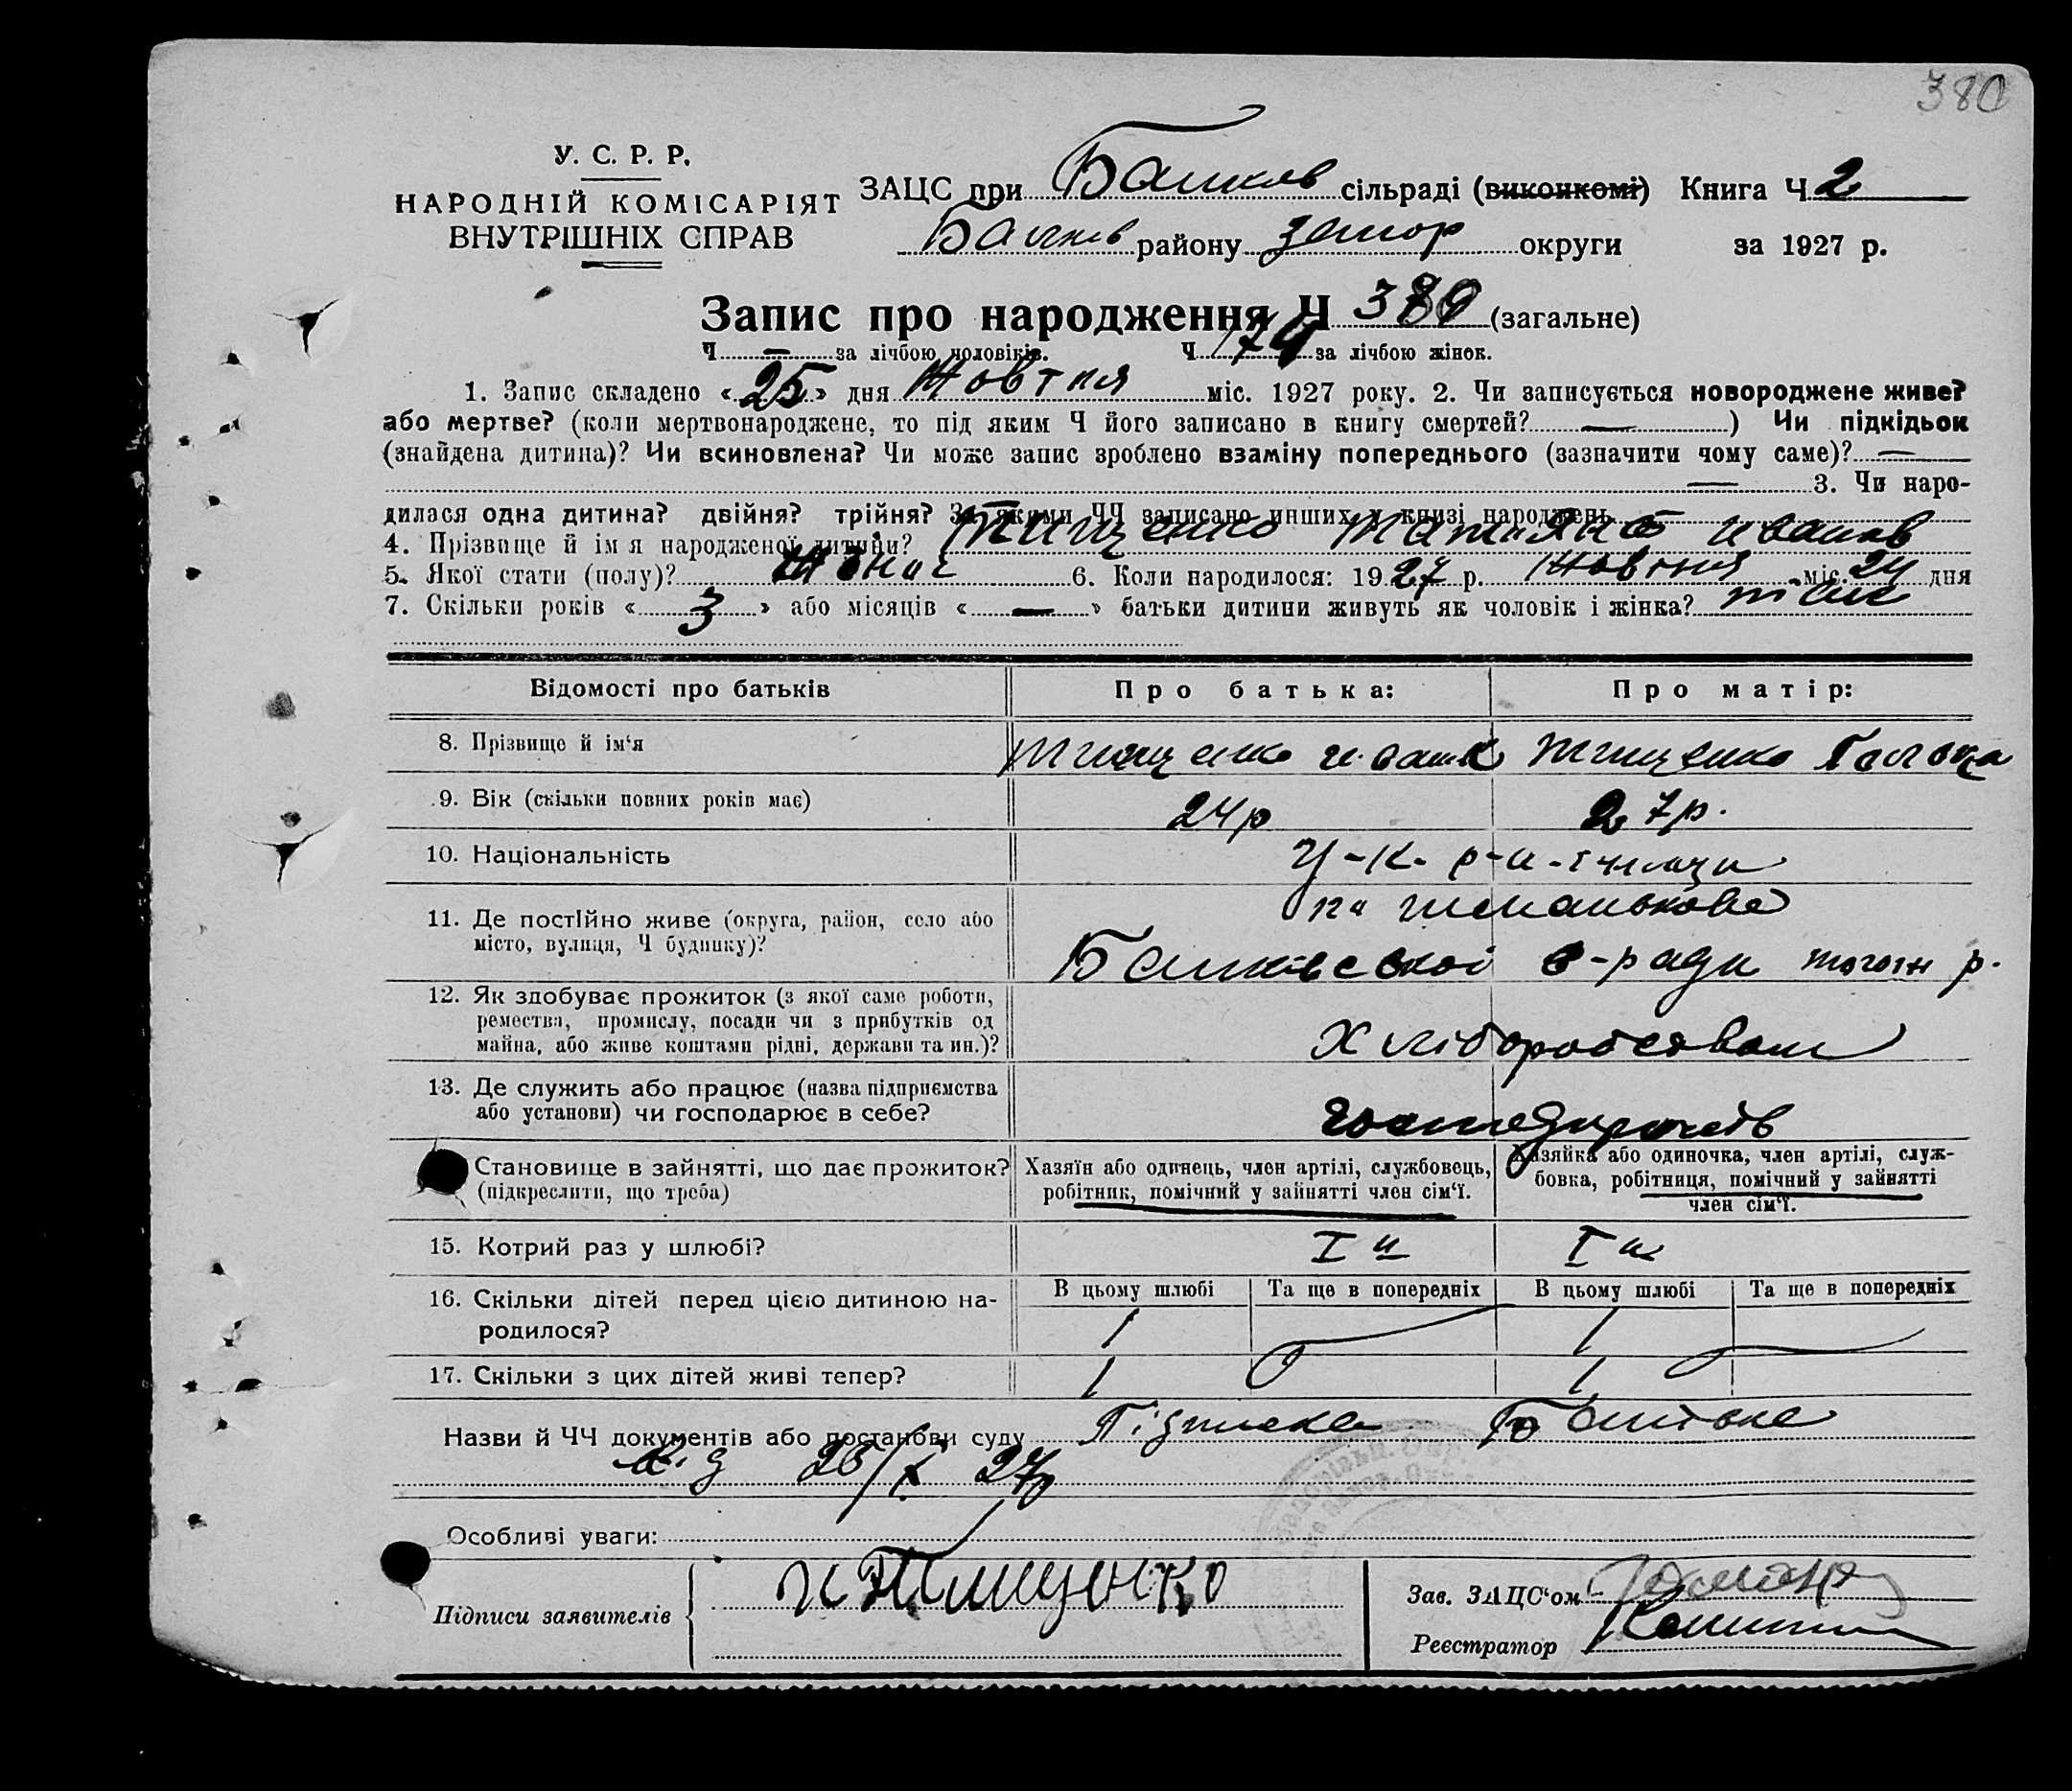 380
У. С. Р. Р.
НАРОДНІЙ КОМІСАРІЯТ
ВНУТРІШНІХ СПРАВ
ЗАЦС при Балков сільраді (виконкомі) Книга Ч 2
Балков району Запор округи за 1927 р.
Запис про народження Ч 380 (загальне)
Ч — за лічбою чоловіків. Ч 174 за лічбою жінок.
1. Запис складено « 25 » дня Жовтня міс. 1927 року. 2. Чи записується новороджене живе?
або мертве? (коли мертвонароджене, то під яким Ч його записано в книгу смертей? — ) Чи підкідьок
(знайдена дитина)? Чи всиновлена? Чи може запис зроблено взаміну попереднього (зазначити чому саме)? —
— 3. Чи наро-
дилася одна дитина? двійня? трійня? За якими ЧЧ записано инших у книзі народжень
4. Прізвище й ім я народженої дитини? Тищенко Татьяна Иванов
5. Якої стати (полу)? Жіноч 6. Коли народилося: 1927 р. Жовтня міс. 24 дня
7. Скільки років « 3 » або місяців « — » батьки дитини живуть як чоловік і жінка?
Відомості про батьків Про батька: Про матір:
8. Прізвище й ім'я Тищенко Иван Тищенко
9. Вік (скільки повних років має) 24р 27р.
10. Національність У-к-р-и-
11. Де постійно живе (округа, район, село або
місто, вулиця, Ч будинку)? Балківської с-ради р.
12. Як здобуває прожиток (з якої саме роботи,
ремества, промислу, посади чи з прибутків од
майна, або живе коштами рідні, держави та ин.)? Хліборобством
13. Де служить або працює (назва підприємства
або установи) чи господарює в себе?
Становище в зайнятті, що дає прожиток?
(підкреслити, що треба)
Хазяїн або одинець, член артілі, службовець,
робітник, помічний у зайнятті член сім'ї.
Хазяйка або одиночка, член артілі, служ-
бовка, робітниця, помічний у зайнятті
член сім'ї.
15. Котрий раз у шлюбі? I й I й
16. Скільки дітей перед цією дитиною на-
родилося?
В цьому шлюбі Та ще в попередніх В цьому шлюбі Та ще в попередніх
1 1
17. Скільки з цих дітей живі тепер? 1 1
Назви й ЧЧ документів або постанови суду Підписка Батька
від 25/X 27р
Особливі уваги:
Підписи заявителів И Тищенко
Зав. ЗАЦС'ом
Реєстратор